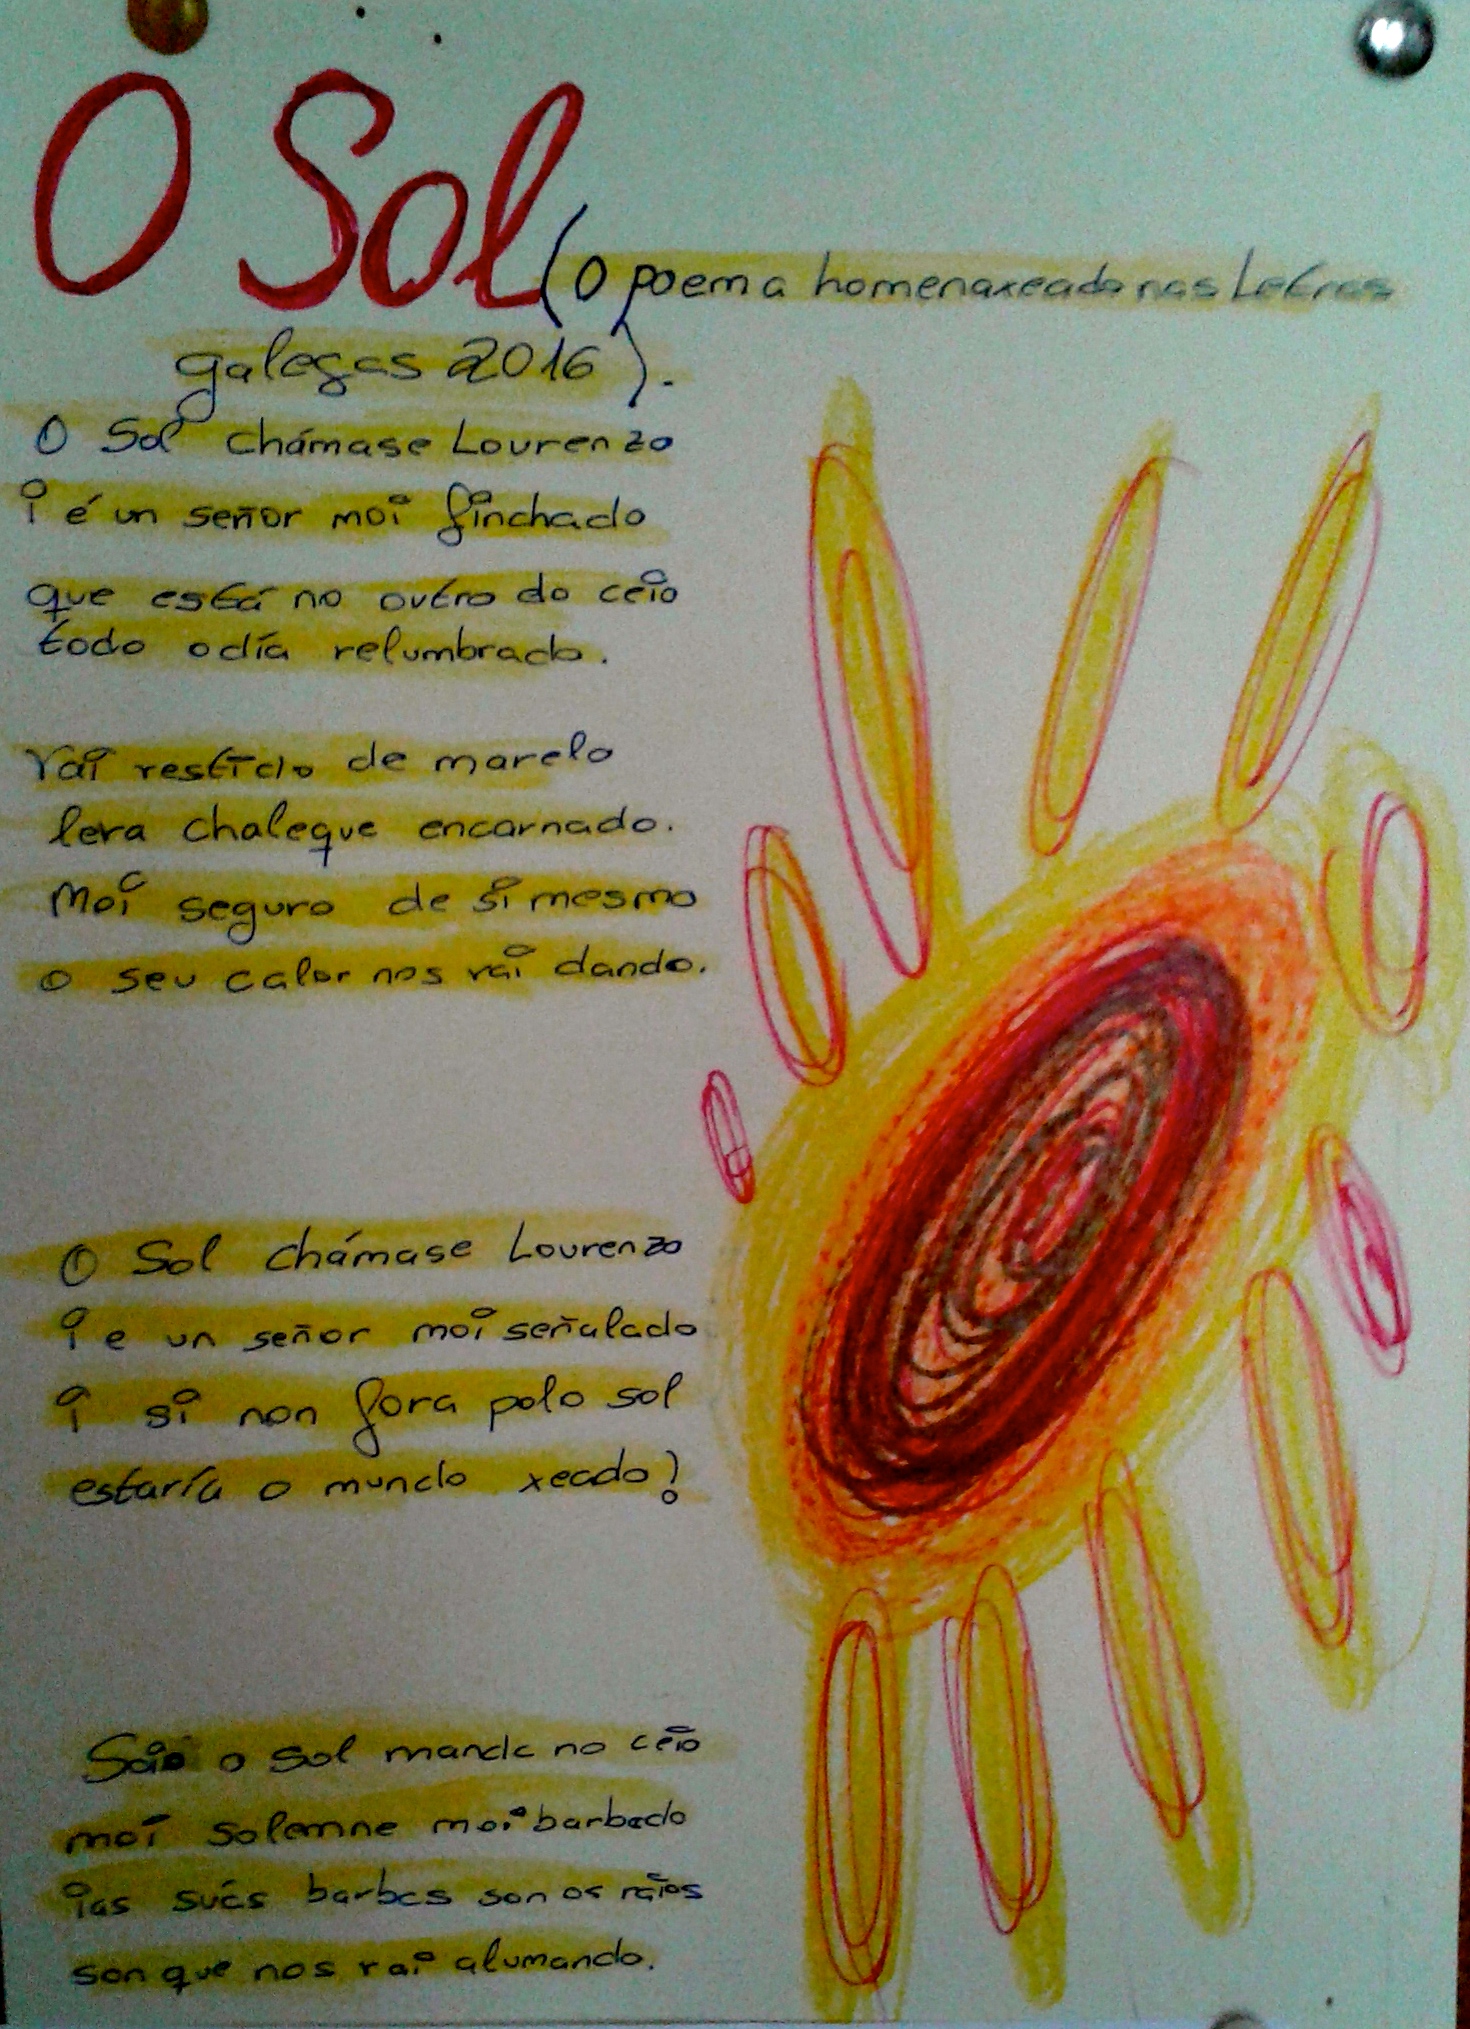 O Sol (O poema homenaxeado nas Letras
galegas 2016).
O Sol chámase Lourenzo
i é un señor moi finchado
que está no outro do ceio
todo o día relumbrado.
Vai vestido de marelo
leva chaleque encarnado.
Moi seguro de si mesmo
o seu calor nos vai dando.
O Sol chámase Lourenzo
i e un señor moi señalado
i si non fora polo sol
estaría o mundo xeado!
o sol manda no ceio
moi solemne moi barbado
ias súas barbas son os raios
son que nos vai alumando.